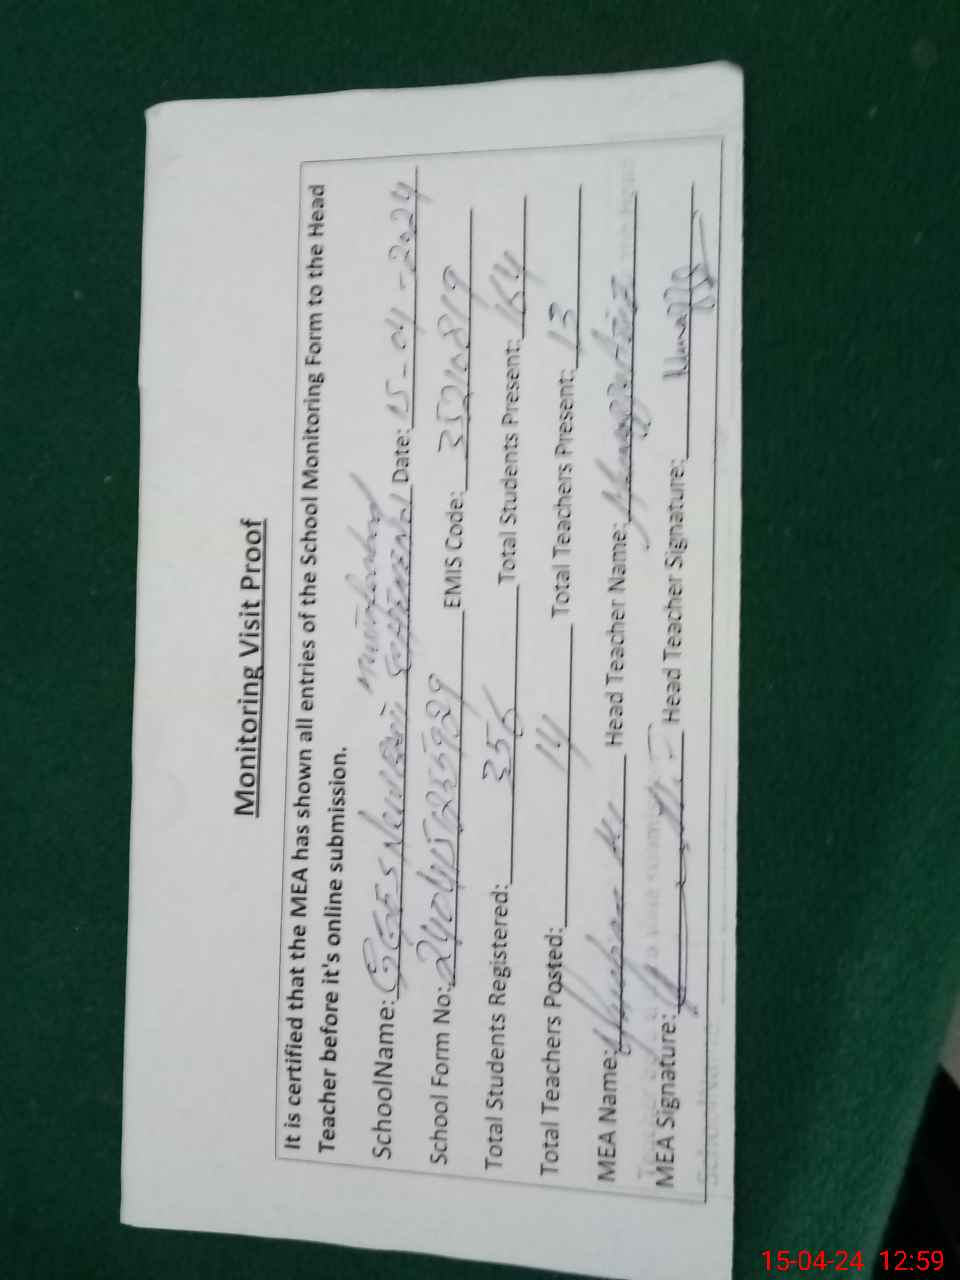 Monitoring Visit Proof
It is certified that the MEA has shown all entries of the School Monitoring Form to the Head
Teacher before it's online submission.
SchoolName: GGES Date: 15-04-2024
School Form No: EMIS Code: 35210819
Total Students Registered: 356 Total Students Present: 164
Total Teachers Posted: 14 Total Teachers Present: 13
MEA Name: Head Teacher Name:
MEA Signature: Head Teacher Signature:
15-04-24 12:59